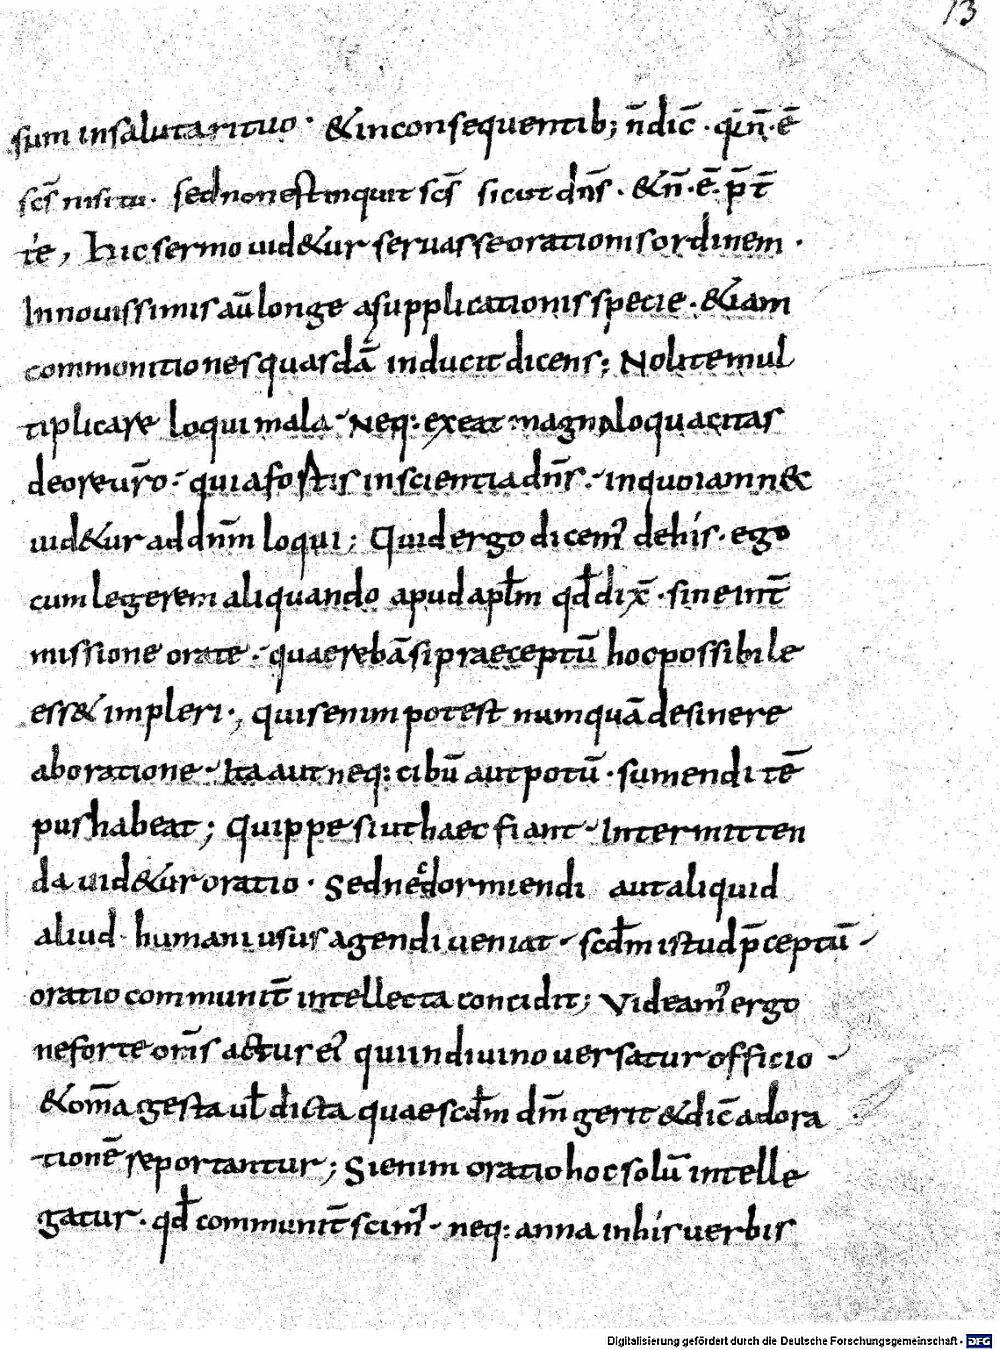 13
sum insalutarituo · &inconsequentib; n̄dic̄ · q̇in̄·ē
scs̄ nisi tu · sednonest inquit scs̄ sicut dn̄s · &n̄·ē· p̄t̄
te, hicsermo uid&ur seruasseorationisordinem ·
Innouissimisaūlonge asupplicationisspecie · &iam
commonitionesquasdā inducit dicens; Nolitemul
tiplicare loqui mala · Neq: exeat magnaloquacitas
deoreur̄o · quiafostis inscientiadn̄s · inquoiamn&
uid&ur addn̄m loqui; Quidergo dicem᾿ dehis · ego
cumlegerem aliquando apudapl̄m qd̄dix̄ · sineint̄
missione orate · quaerebāsipraeceptū hocpossibile
ess& impleri ·, quisenim potest numquādesinere
aboratione · Ita aut neq: cibū autpotū · sumendi tē
pushabeat; Quippe siuthaec fiant · Intermitten
da uid&ur oratio · Sednecdormiendi autaliquid
aliud · humani usus agendi ueniat · scd̄m istudp̄ceptū ·
oratio communit̄ intellecta concidit; Videam᾿ ergo
neforte om̄s actus ei᾿ quiindiuino uersatur officio ·
&om̄a gesta ul̄ dicta quaescd̄m dm̄ gerit &dic̄ adora
tionē reportantur; Sienim oratiohocsolū intelle
gatur · qd̄ communit̄ scim᾿ · neq: anna inhis uerbis
Digitalisierung gefördert durch die Deutsche Forschungsgemeinschaft - DFG